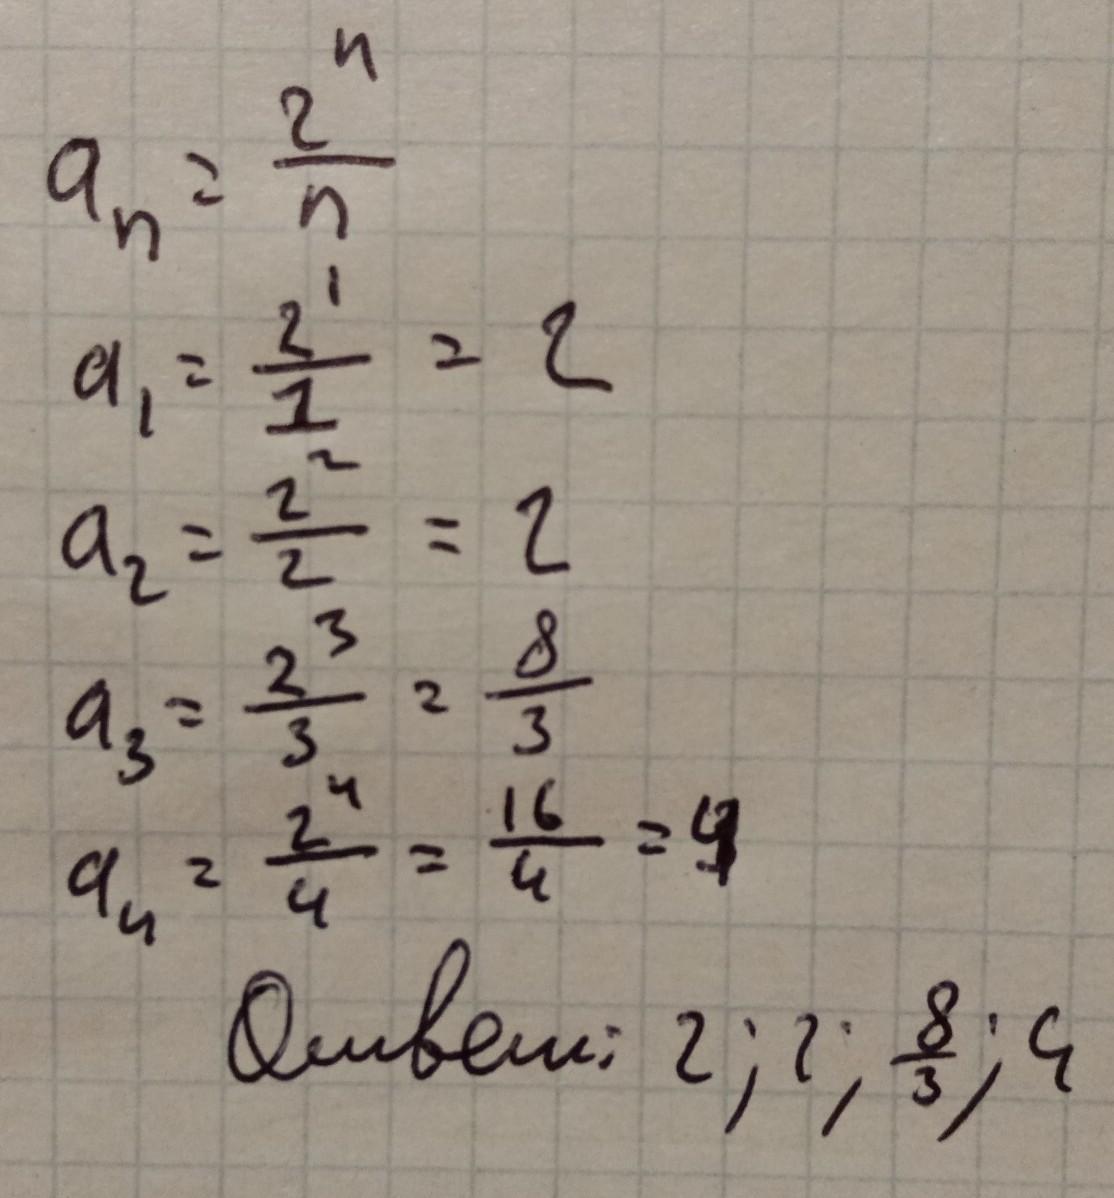 aₙ = 2ⁿ/n
a₁ = 2¹/1 = 2
a₂ = 2²/2 = 2
a₃ = 2³/3 = 8/3
a₄ = 2⁴/4 = 16/4 = 4
Ответ: 2; 2; 8/3; 4